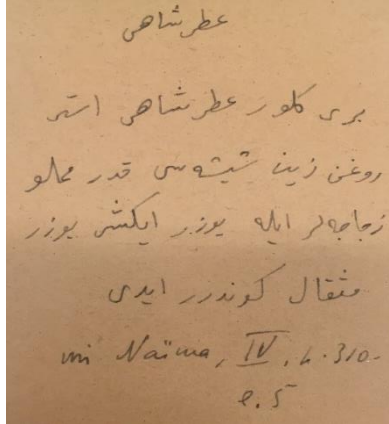 عطر شاهی
بری کلور عطر شاهی استر
روغن زیت شیشه سی قدر مملو
زجاجه لر ایله یوزر ایکشر یوزر
مثقال کوندرر ایدی
Naïma, IV, s. 310-